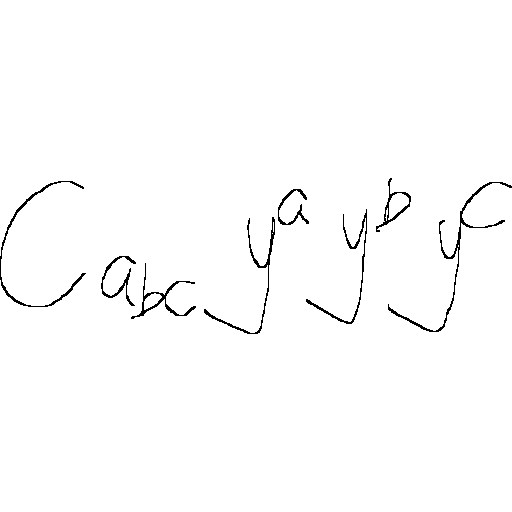 C_{abc} y^a y^b y^c